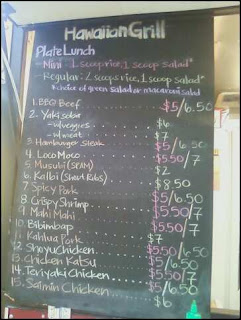 Hawaiian Grill
Plate Lunch
- Mini: 1 scoop rice, 1 scoop salad*
- Regular: 2 scoops rice, 1 scoop salad*
*choice of green salad or macaroni salad
1. BBQ Beef $5/6.50
2. Yaki soba
- w/veggies $6
- w/meat $7
3. Hamburger steak $5/6.50
4. Loco Moco $5.50/7
5. Musubi (SPAM) $2
6. Kalbi (Short Ribs) $8.50
7. Spicy Pork $5/6.50
8. Crispy Shrimp $5.50/7
9. Mahi Mahi $5.50/7
10. Bibimbap $7
11. Kahlua Pork $5.50/7
12. Shoyu Chicken $5/6.50
13. Chicken Katsu $5/6.50
14. Teriyaki Chicken $5/6.50
15. Saimin Chicken $6